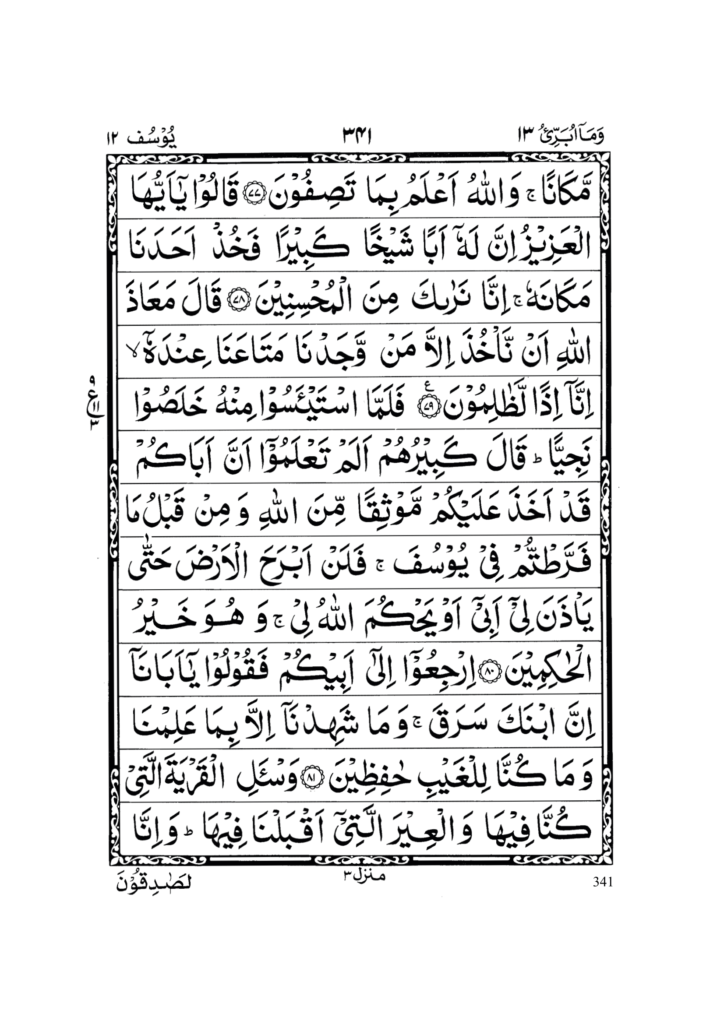 وَمَاۤ اُبَرِّئُ ١٣ ٣٤١ يُوْسُف ١٢
مَّكَانًا ۚ وَاللّٰهُ اَعْلَمُ بِمَا تَصِفُوْنَ ۝٧٧ قَالُوْا يٰۤاَيُّهَا
الْعَزِيْزُ اِنَّ لَهٗۤ اَبًا شَيْخًا كَبِيْرًا فَخُذْ اَحَدَنَا
مَكَانَهٗ ۚ اِنَّا نَرٰىكَ مِنَ الْمُحْسِنِيْنَ ۝٧٨ قَالَ مَعَاذَ
اللّٰهِ اَنْ نَّاْخُذَ اِلَّا مَنْ وَّجَدْنَا مَتَاعَنَا عِنْدَهٗۤ ۙ
اِنَّاۤ اِذًا لَّظٰلِمُوْنَ ۝٧٩ ع فَلَمَّا اسْتَيْـَٔسُوْا مِنْهُ خَلَصُوْا
٩ ع ١١ ٣
نَجِيًّا ؕ قَالَ كَبِيْرُهُمْ اَلَمْ تَعْلَمُوْۤا اَنَّ اَبَاكُمْ
قَدْ اَخَذَ عَلَيْكُمْ مَّوْثِقًا مِّنَ اللّٰهِ وَمِنْ قَبْلُ مَا
فَرَّطْتُّمْ فِيْ يُوْسُفَ ۚ فَلَنْ اَبْرَحَ الْاَرْضَ حَتّٰى
يَاْذَنَ لِيْۤ اَبِيْۤ اَوْ يَحْكُمَ اللّٰهُ لِيْ ۚ وَهُوَ خَيْرُ
الْحٰكِمِيْنَ ۝٨٠ اِرْجِعُوْۤا اِلٰۤى اَبِيْكُمْ فَقُوْلُوْا يٰۤاَبَانَاۤ
اِنَّ ابْنَكَ سَرَقَ ۚ وَمَا شَهِدْنَاۤ اِلَّا بِمَا عَلِمْنَا
وَمَا كُنَّا لِلْغَيْبِ حٰفِظِيْنَ ۝٨١ وَسْـَٔلِ الْقَرْيَةَ الَّتِيْ
كُنَّا فِيْهَا وَالْعِيْرَ الَّتِيْۤ اَقْبَلْنَا فِيْهَا ؕ وَاِنَّا
341 منزل ٣ لَصٰدِقُوْنَ